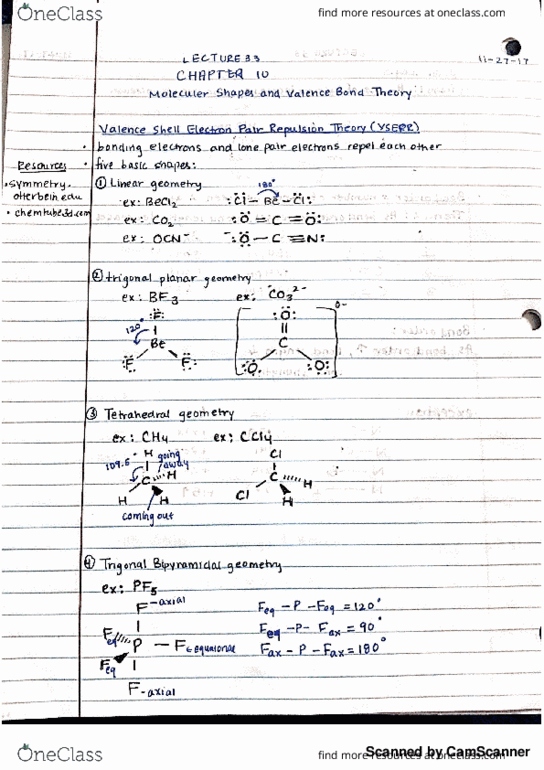 OneClass
find more resources at oneclass.com
LECTURE 33
11-27-17
CHAPTER 10
Moleculer Shapes and Valence Bond Theory
Valence Shell Electron Pair Repulsion Theory (VSEPR)
• bonding electrons and lone pair electrons repel each other
Resources
• five basic shapes:
• symmetry.
otterbein.edu
• chemtube3d.com
① Linear geometry
180°
ex: BeCl2 :Cl - Be - Cl:
ex: CO2 :O = C = O:
ex: OCN⁻ ⁻:O - C ≡ N:
② trigonal planar geometry
ex: BF3 ex: CO3²⁻
:F: :O:
120°
Be C
:F: :F: :O: :O:
③ Tetrahedral geometry
ex: CH4 ex: CCl4
H going away Cl
109.5°
C H C H
H H Cl H
coming out
④ Trigonal Bipyramidal geometry
ex: PF5
F-axial
Feq - P - Feq = 120°
Feq P - F
Feq - P - Fax = 90°
Feq
Fax - P - Fax = 180°
F-axial
OneClass
find more resources at oneclass.com
Scanned by CamScanner